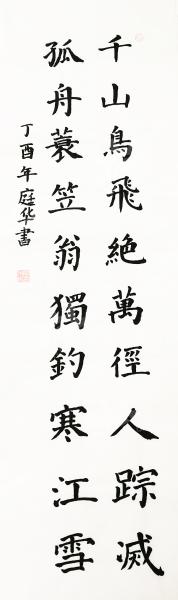 千山鳥飛絶萬徑人踪滅
孤舟蓑笠翁獨釣寒江雪
丁酉年庭华書